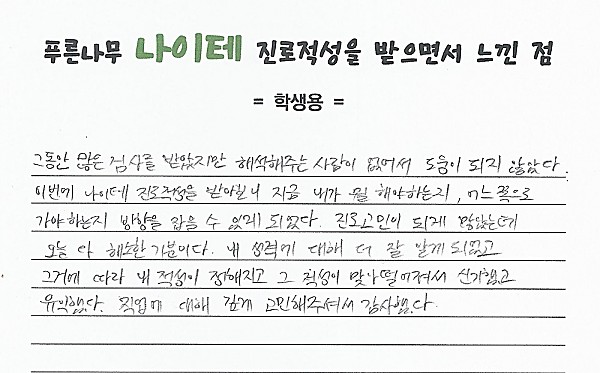 푸른나무 나이테 진로적성을 받으면서 느낀 점
= 학생용 =
그동안 많은 검사를 받았지만 해석해주는 사람이 없어서 도움이 되지 않았다.
이번에 나이테 진로적성을 받아보니 지금 내가 뭘 해야하는지, 어느 쪽으로
가야하는지 방향을 잡을 수 있게 되었다. 진로고민이 되게 많았는데
오늘 다 해소한 기분이다. 내 성격에 대해 더 잘 알게 되었고
그거에 따라 내 적성이 정해지고 그 적성이 맞아떨어져서 신기했고
유익했다. 직업에 대해 깊게 고민해주셔서 감사했다.